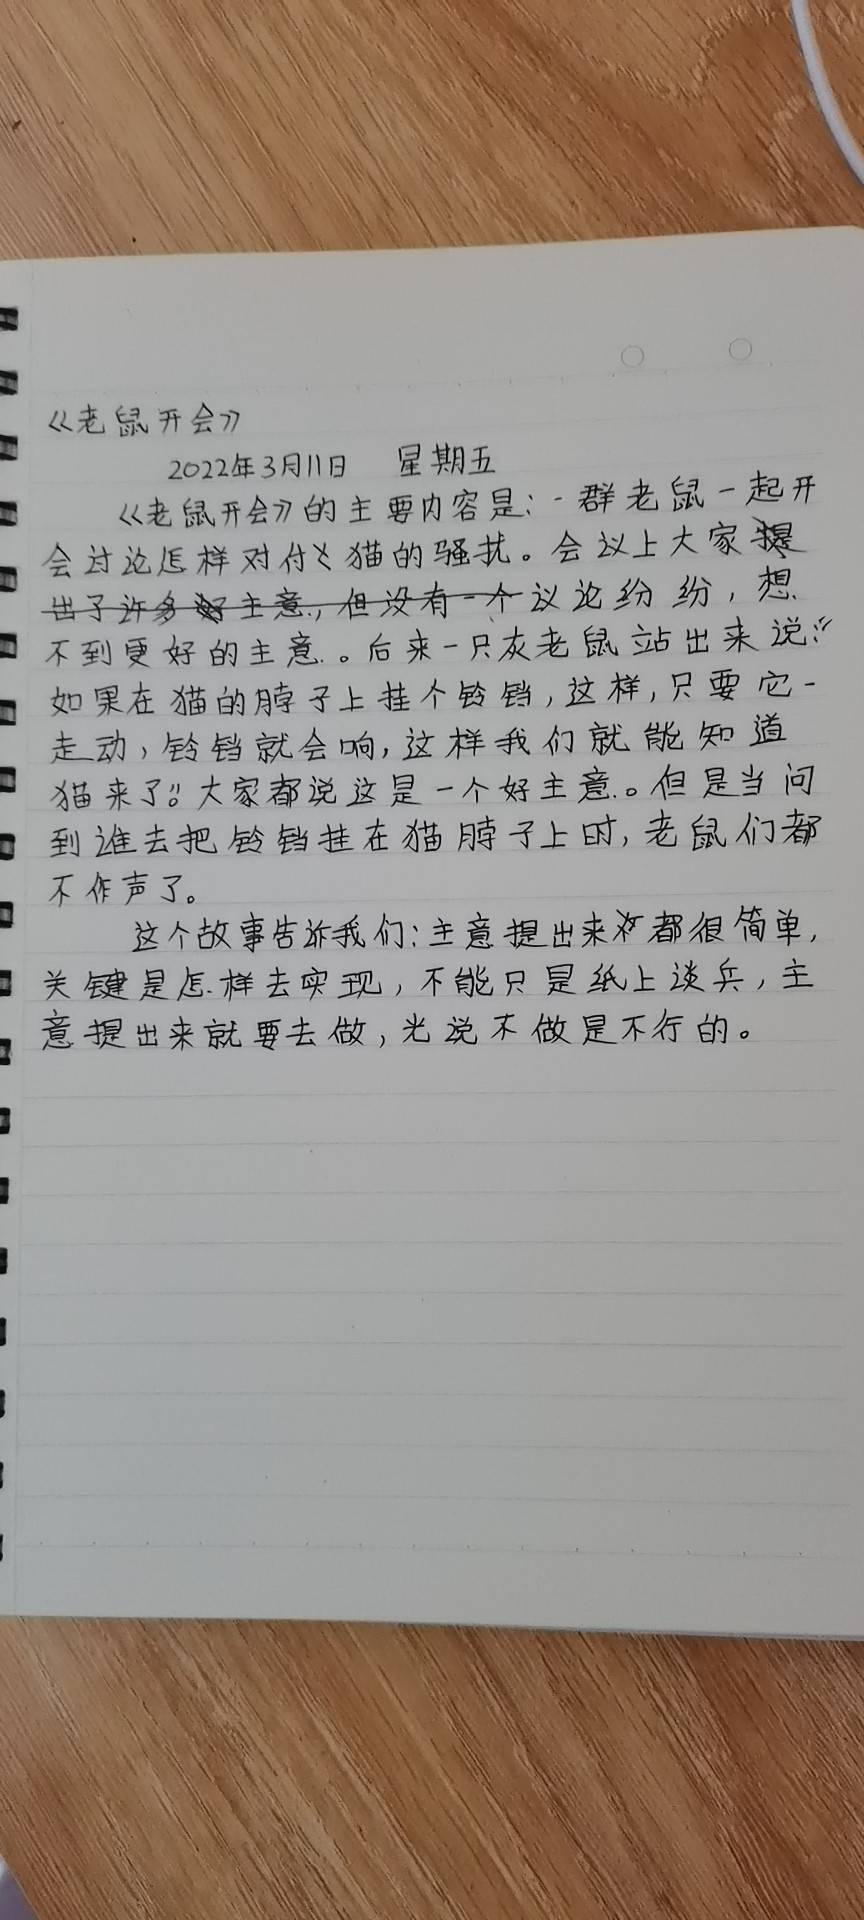 《老鼠开会》
2022年3月11日 星期五
《老鼠开会》的主要内容是：一群老鼠一起开
会讨论怎样对付猫的骚扰。会议上大家提
出了许多好主意，但没有一个议论纷纷，想
不到更好的主意。后来一只灰老鼠站出来说：“
如果在猫的脖子上挂个铃铛，这样，只要它一
走动，铃铛就会响，这样我们就能知道
猫来了！”大家都说这是一个好主意。但是当问
到谁去把铃铛挂在猫脖子上时，老鼠们都
不作声了。
这个故事告诉我们：主意提出来都很简单，
关键是怎样去实现，不能只是纸上谈兵，主
意提出来就要去做，光说不做是不行的。